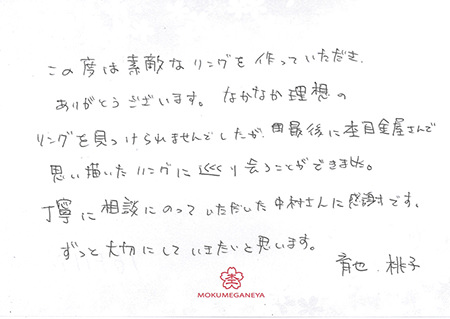 この度は素敵なリングを作っていただき、
ありがとうございます。なかなか理想の
リングを見つけられませんでしたが、最後に杢目金屋さんで
思い描いたリングに巡り会うことができました。
丁寧に相談にのっていただいた中村さんに感謝です。
ずっと大切にしていきたいと思います。
育也 桃子
MOKUMEGANEYA